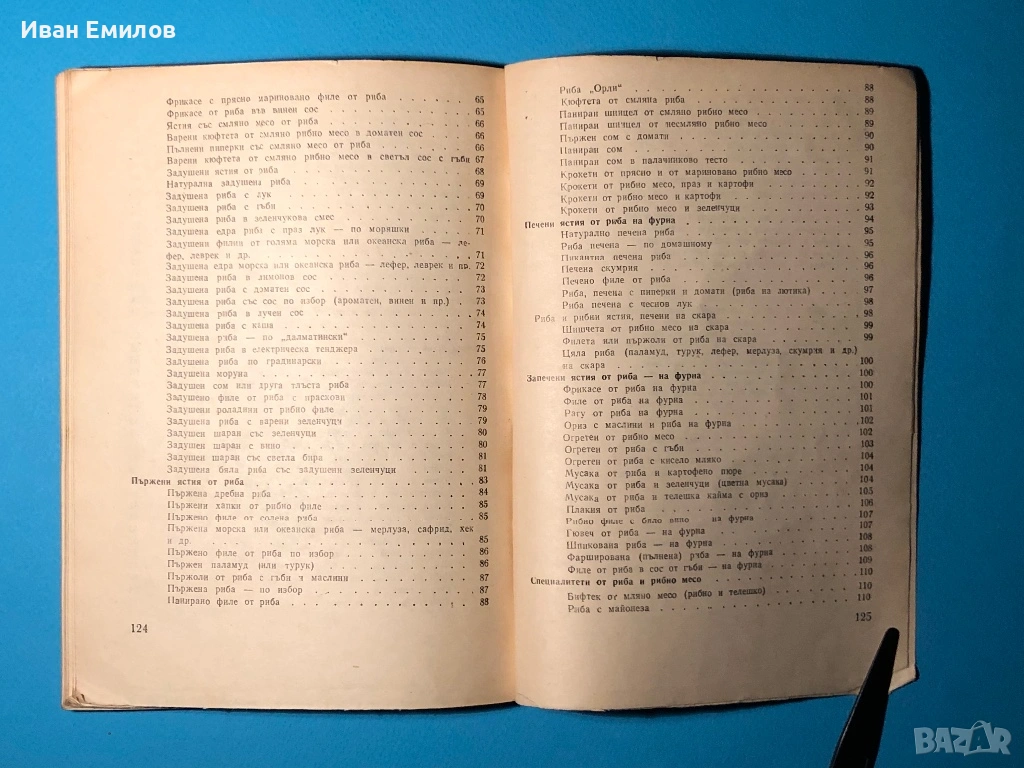 Иван Емилов
Фрикасе с прясно мариновано филе от риба . . . . . . 65
Фрикасе от риба във винен сос . . . . . . 65
Ястия със смляно месо от риба . . . . . . 66
Варени кюфтета от смляно рибно месо в доматен сос . . 66
Пълнени пиперки със смляно месо от риба . . . . . . 66
Варени кюфтета от смляно рибно месо в светъл сос с гъби 67
Задушени ястия от риба . . . . . . 68
Натурална задушена риба . . . . . . 69
Задушена риба с лук . . . . . . 69
Задушена риба с гъби . . . . . . 70
Задушена риба в зеленчукова смес . . . . . . 70
Задушена едра риба с праз лук — по моряшки . . . . 71
Задушени филии от голяма морска или океанска риба — ле-
фер, леврек и др. . . . . . . 71
Задушена едра морска или океанска риба — лефер, леврек и пр. 72
Задушена риба в лимонов сос . . . . . . 72
Задушена риба с доматен сос . . . . . . 73
Задушена риба със сос по избор (ароматен, винен и пр.) . . 73
Задушена риба в лучен сос . . . . . . 74
Задушена риба с каша . . . . . . 74
Задушена риба — по „далматински“ . . . . . . 75
Задушена риба в електрическа тенджера . . . . . . 75
Задушена риба по градинарски . . . . . . 76
Задушена моруна . . . . . . 77
Задушен сом или друга тлъста риба . . . . . . 77
Задушено филе от риба с прасхови . . . . . . 78
Задушени роладини от рибно филе . . . . . . 79
Задушена риба с варени зеленчуци . . . . . . 79
Задушен шаран със зеленчуци . . . . . . 80
Задушен шаран с вино . . . . . . 80
Задушен шаран със светла бира . . . . . . 81
Задушена бяла риба със задушени зеленчуци . . . . 81
Пържени ястия от риба . . . . . . 83
Пържена дребна риба . . . . . . 84
Пържени хапки от рибно филе . . . . . . 85
Пържено филе от солена риба . . . . . . 85
Пържена морска или океанска риба — мерлуза, сафрид, хек
и др. . . . . . . 85
Пържено филе от риба по избор . . . . . . 86
Пържен паламуд (или турук) . . . . . . 86
Пържоли от риба с гъби и маслини . . . . . . 87
Пържена риба — по избор . . . . . . 87
Панирано филе от риба . . . . . . 88
124
Риба „Орли“ . . . . . . 88
Кюфтета от смляна риба . . . . . . 88
Паниран шницел от смляно рибно месо . . . . . . 89
Паниран шницел от несмляно рибно месо . . . . . . 89
Пържен сом с домати . . . . . . 90
Паниран сом . . . . . . 90
Паниран сом в палачинково тесто . . . . . . 91
Крокети от прясно и от мариновано рибно месо . . . . 91
Крокети от рибно месо, праз и картофи . . . . . . 92
Крокети от рибно месо и картофи . . . . . . 92
Крокети от рибно месо и зеленчуци . . . . . . 93
Печени ястия от риба на фурна . . . . . . 94
Натурално печена риба . . . . . . 95
Риба печена — по домашному . . . . . . 95
Пикантна печена риба . . . . . . 96
Печена скумрия . . . . . . 96
Печено филе от риба . . . . . . 96
Риба, печена с пиперки и домати (риба на лютика) . . . . 97
Риба печена с чеснов лук . . . . . . 98
Риба и рибни ястия, печени на скара . . . . . . 98
Шишчета от рибно месо на скара . . . . . . 99
Филета или пържоли от риба на скара . . . . . . 99
Цяла риба (паламуд, турук, лефер, мерлуза, скумрия и др.)
на скара . . . . . . 100
Запечени ястия от риба — на фурна . . . . . . 100
Фрикасе от риба на фурна . . . . . . 100
Филе от риба на фурна . . . . . . 101
Рагу от риба на фурна . . . . . . 101
Ориз с маслини и риба на фурна . . . . . . 102
Огретен от рибно месо . . . . . . 102
Огретен от риба с гъби . . . . . . 103
Огретен от риба с кисело мляко . . . . . . 104
Мусака от риба и картофено пюре . . . . . . 104
Мусака от риба и зеленчуци (цветна мусака) . . . . 104
Мусака от риба и телешка кайма с ориз . . . . . . 105
Плакия от риба . . . . . . 106
Рибно филе с бяло вино на фурна . . . . . . 107
Гювеч от риба — на фурна . . . . . . 107
Шпикована риба — на фурна . . . . . . 108
Фарширована (пълнена) риба — на фурна . . . . . . 108
Филе от риба в сос от гъби — на фурна . . . . . . 109
Специалитети от риба и рибно месо . . . . . . 110
Бифтек от мляно месо (рибно и телешко) . . . . . . 110
Риба с майонеза . . . . . . 110
125
BAZAR